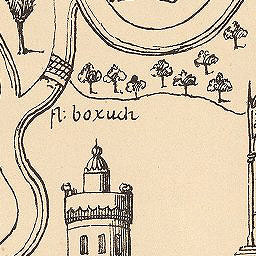 fl: boxuch